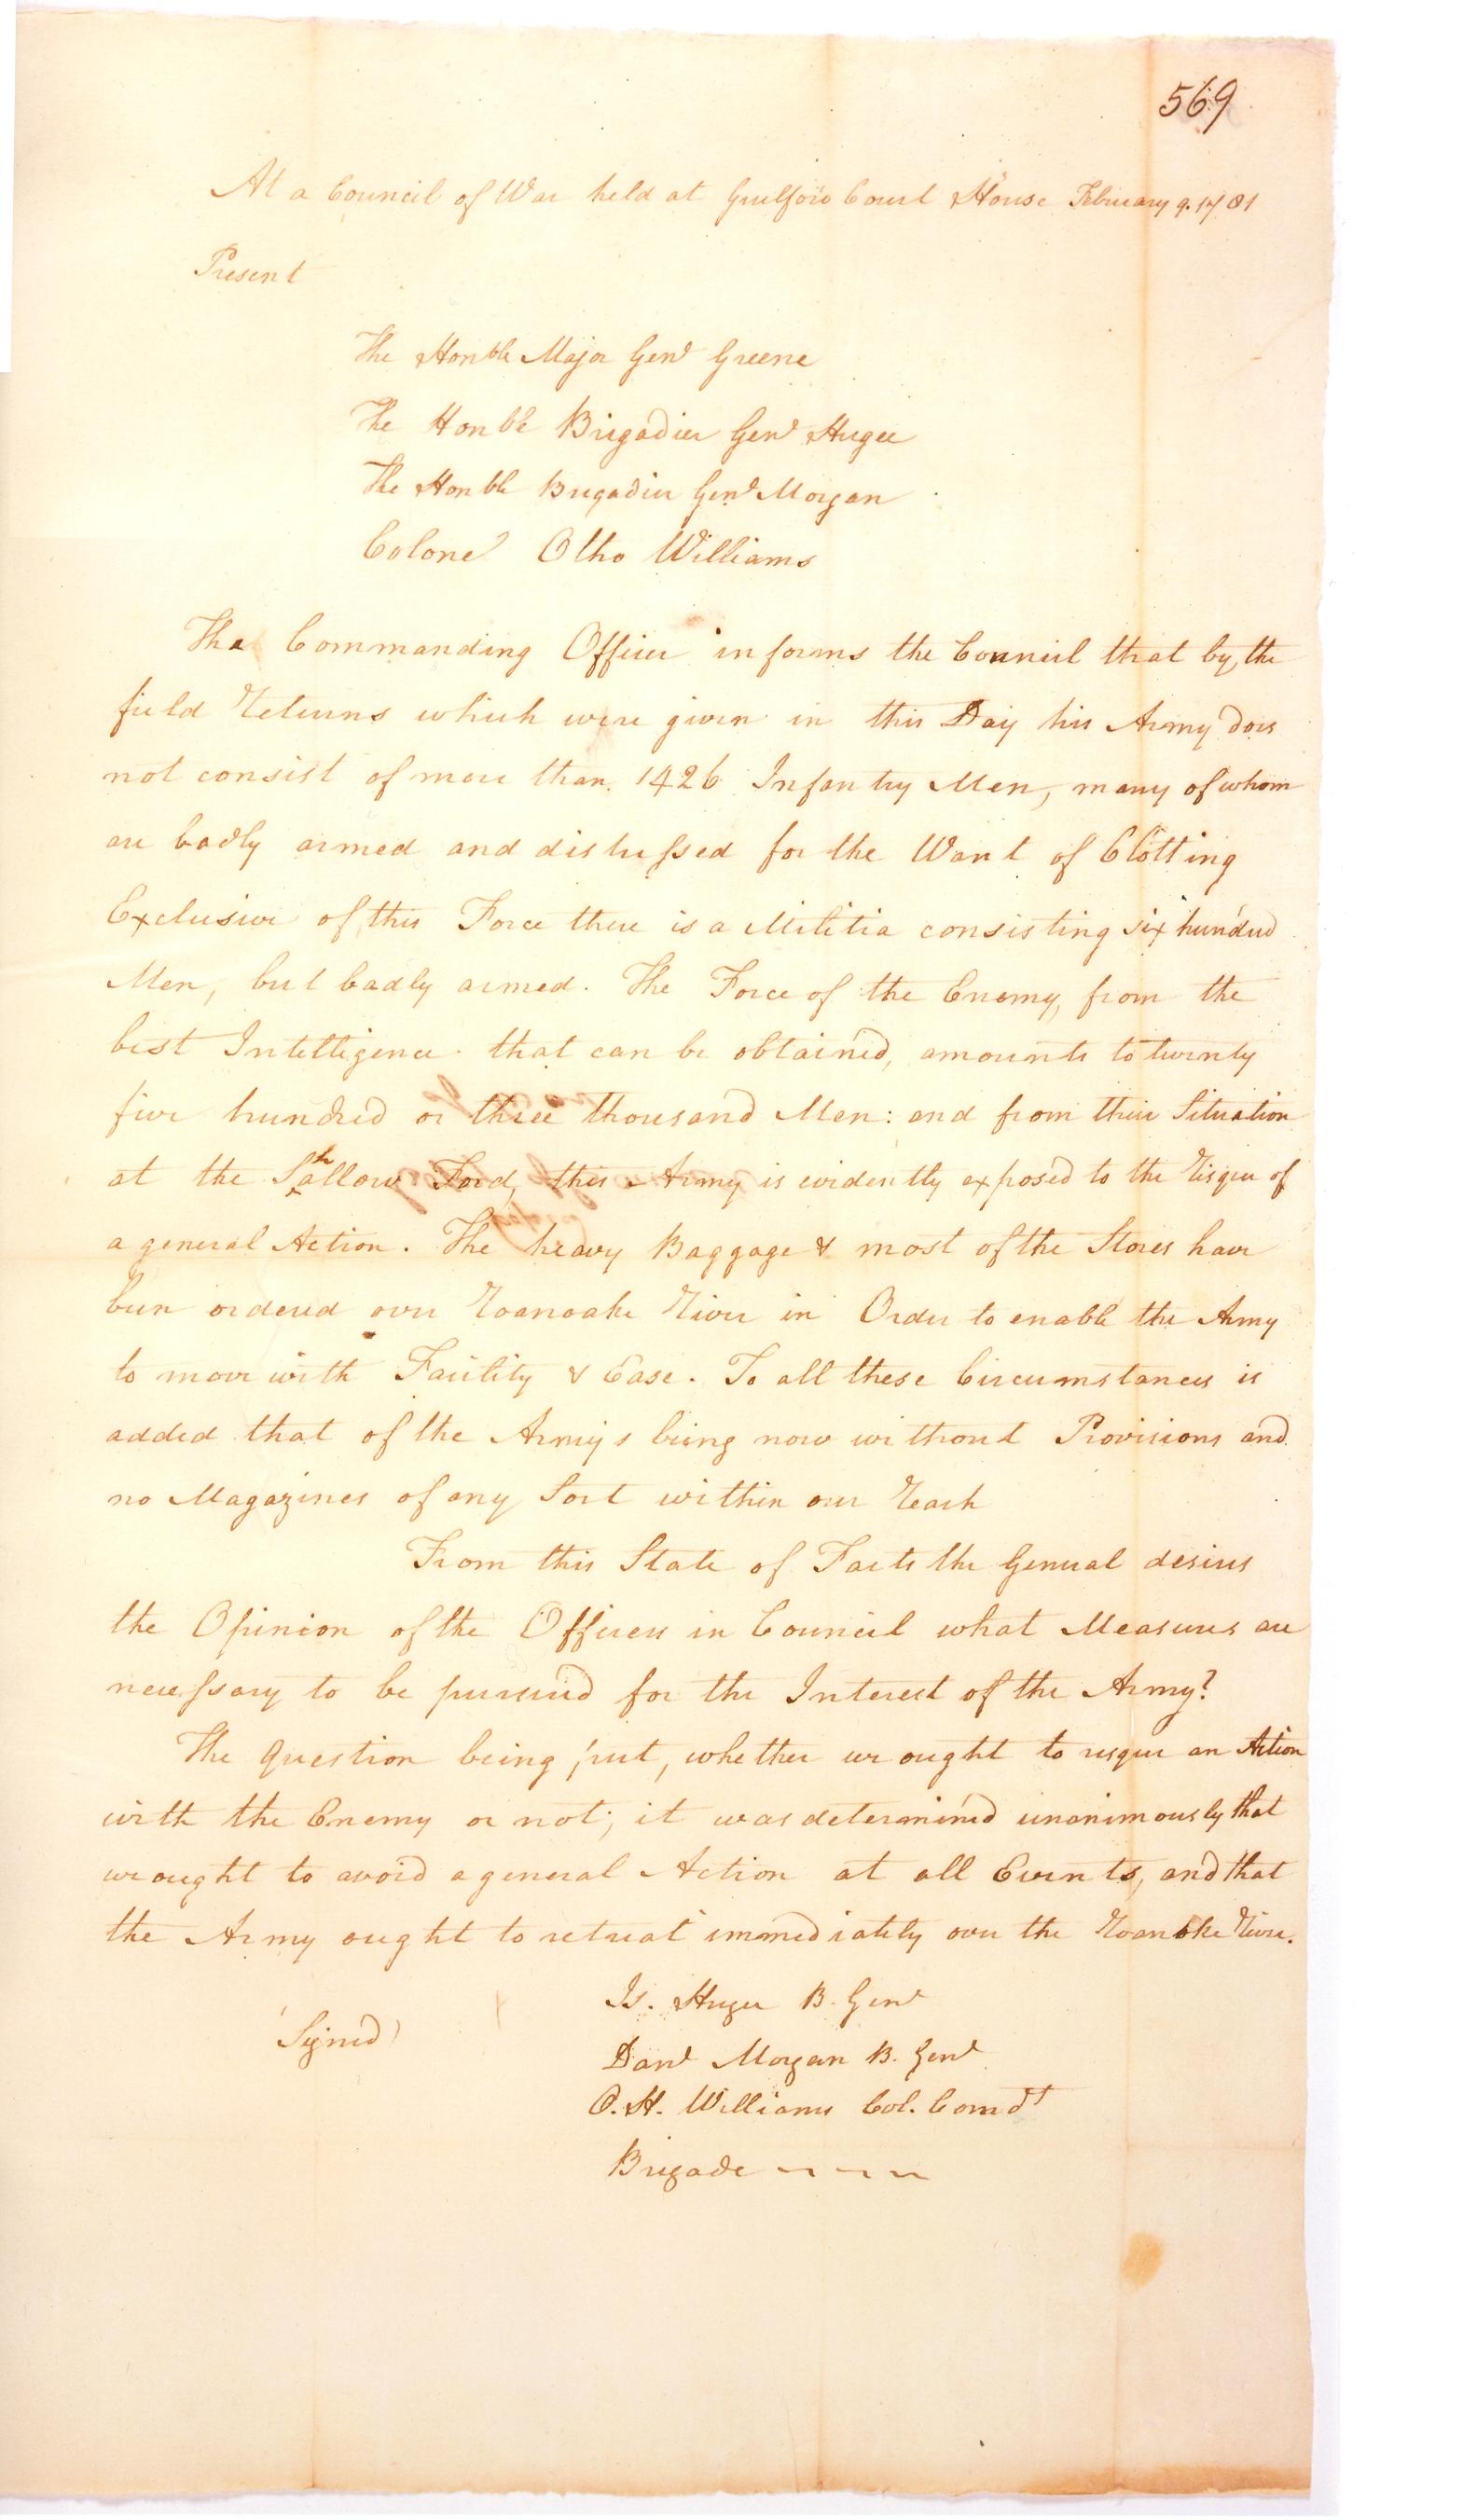 569
At a Council of War held at Guilford Court House February 9. 1781
Present
The Honble Major Genl Greene
The Honble Brigadier Genl Huger
The Honble Brigadier Genl Morgan
Colonel Otho Williams
The Commanding Officer informs the Council that by the
field Returns which were given in this Day his Army does
not consist of more than 1426 Infantry Men, many of whom
are badly armed and distressed for the Want of Clotting
Exclusive of this Force there is a Militia consisting six hundred
Men, but badly armed. The Force of the Enemy, from the
best Intelligence that can be obtained, amounts to twenty
five hundred or three thousand Men: and from their Situation
at the Shallow Ford, this Army is evidently exposed to the Risque of
a general Action. The heavy Baggage & most of the Stores have
been ordered over Roanoake River in Order to enable the Army
to move with Facility & Ease. To all these Circumstances is
added that of the Army's being now without Provisions and
no Magazines of any Sort within our Reach
From this State of Facts the General desires
the Opinion of the Officers in Council what Measures are
necessary to be pursued for the Interest of the Army?
The Question being put, whether we ought to risque an Action
with the Enemy or not; it was determined unanimously that
we ought to avoid a general Action at all Events, and that
the Army ought to retreat immediately over the Roanoke River.
Is. Huger B. Genl
(Signed)
Danl Morgan B. Genl
O. H. Williams Col. Comdt
Brigade